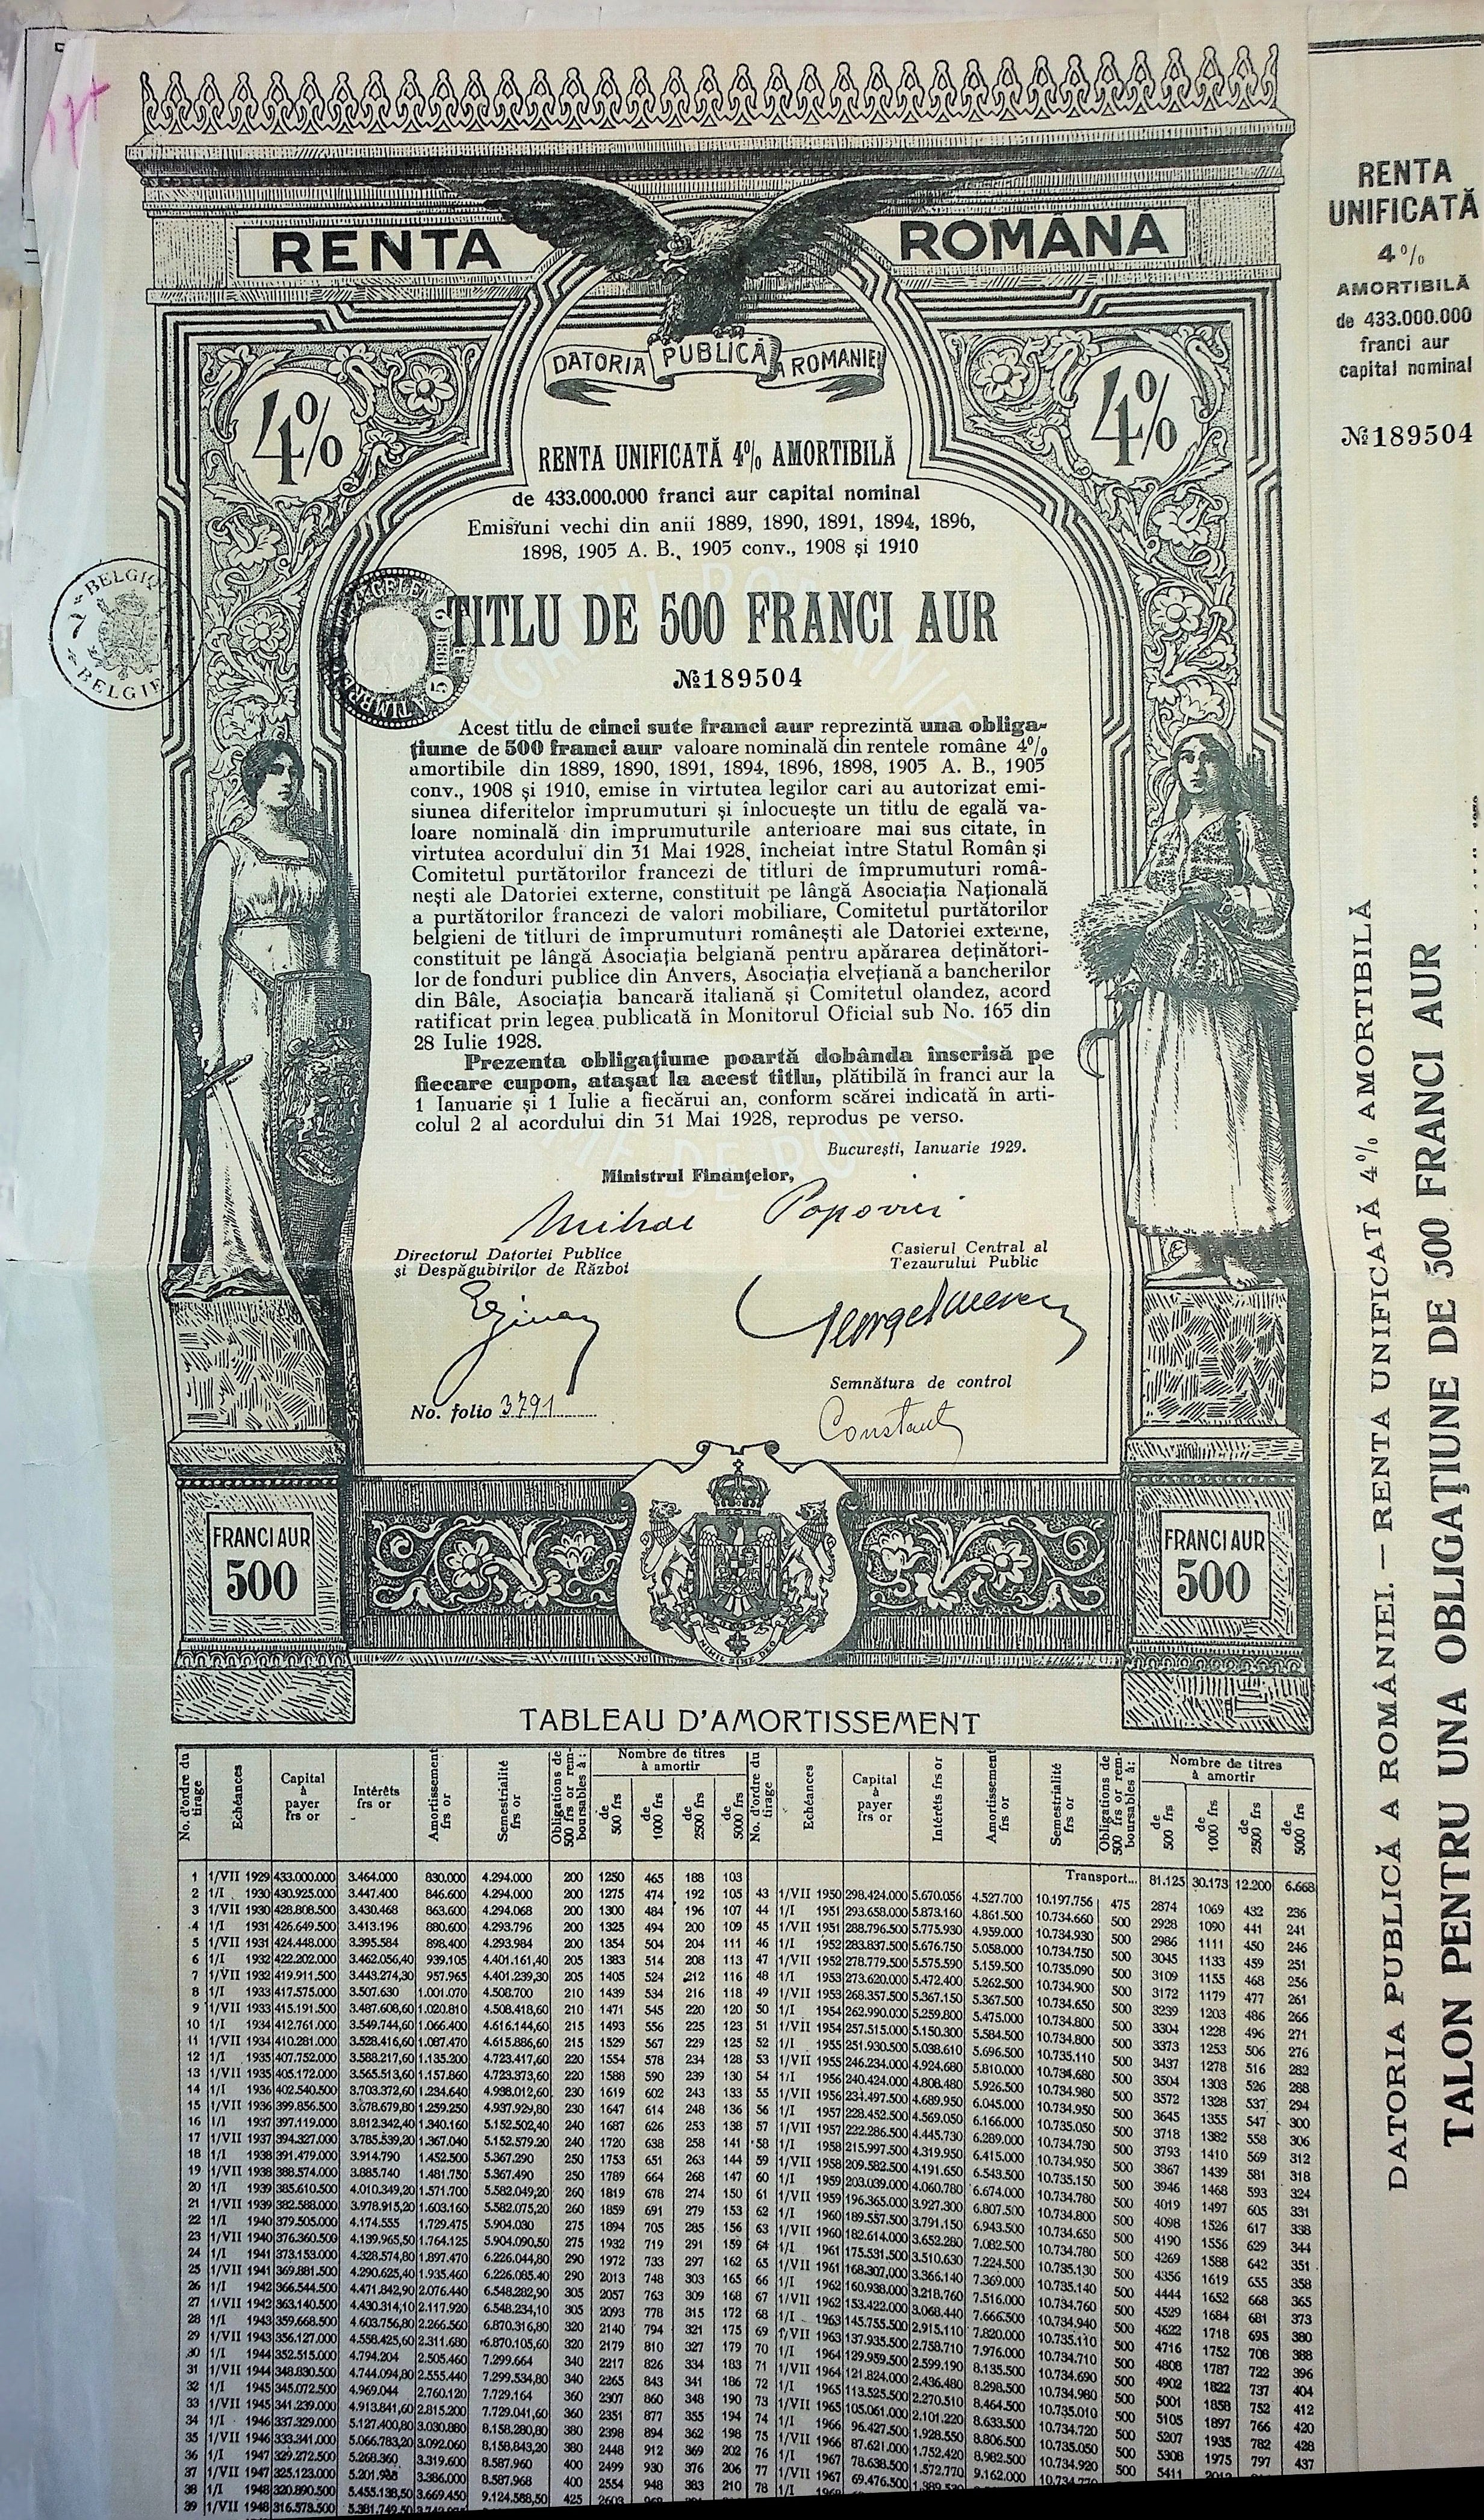 RENTA ROMÂNĂ
DATORIA PUBLICĂ A ROMANIEI
4%
4%
RENTA UNIFICATĂ 4% AMORTIBILĂ
de 433.000.000 franci aur capital nominal
Emisiuni vechi din anii 1889, 1890, 1891, 1894, 1896,
1898, 1905 A. B., 1905 conv., 1908 și 1910
BELGIQUE
BELGIE
TITLU DE 500 FRANCI AUR
№189504
Acest titlu de cinci sute franci aur reprezintă una obliga-
țiune de 500 franci aur valoare nominală din rentele române 4%
amortibile din 1889, 1890, 1891, 1894, 1896, 1898, 1905 A. B., 1905
conv., 1908 și 1910, emise în virtutea legilor cari au autorizat emi-
siunea diferitelor împrumuturi și înlocuește un titlu de egală va-
loare nominală din împrumuturile anterioare mai sus citate, în
virtutea acordului din 31 Mai 1928, încheiat intre Statul Român și
Comitetul purtătorilor francezi de titluri de împrumuturi româ-
nești ale Datoriei externe, constituit pe lângă Asociația Națională
a purtătorilor francezi de valori mobiliare, Comitetul purtătorilor
belgieni de titluri de împrumuturi românești ale Datoriei externe,
constituit pe lângă Asociația belgiană pentru apărarea deținători-
lor de fonduri publice din Anvers, Asociația elvețiană a bancherilor
din Bâle, Asociația bancară italiană și Comitetul olandez, acord
ratificat prin legea publicată în Monitorul Oficial sub No. 165 din
28 Iulie 1928.
Prezenta obligațiune poartă dobânda înscrisă pe
fiecare cupon, atașat la acest titlu, plătibilă în franci aur la
1 Ianuarie și 1 Iulie a fiecărui an, conform scărei indicată în arti-
colul 2 al acordului din 31 Mai 1928, reprodus pe verso.
București, Ianuarie 1929.
Ministrul Finanțelor,
Mihai Popovici
Directorul Datoriei Publice
și Despăgubirilor de Război
Casierul Central al
Tezaurului Public
Semnătura de control
No. folio 3791
FRANCI AUR
500
NIHIL SINE DEO
FRANCI AUR
500
TABLEAU D'AMORTISSEMENT
No. d'ordre du tirage
Echéances
Capital à payer frs or
Intérêts frs or
Amortissement frs or
Semestrialité frs or
Obligations de 500 frs or remboursables à:
Nombre de titres à amortir
de 500 frs
de 1000 frs
de 2500 frs
de 5000 frs
1 1/VII 1929 433.000.000 3.464.000 830.000 4.294.000 200 1250 465 188 103
2 1/I 1930 430.925.000 3.447.400 846.600 4.294.000 200 1275 474 192 105
3 1/VII 1930 428.808.500 3.430.468 863.600 4.294.068 200 1300 484 196 107
4 1/I 1931 426.649.500 3.413.196 880.600 4.293.796 200 1325 494 200 109
5 1/VII 1931 424.448.000 3.395.584 898.400 4.293.984 200 1354 504 204 111
6 1/I 1932 422.202.000 3.462.056,40 939.105 4.401.161,40 205 1383 514 208 113
7 1/VII 1932 419.911.500 3.443.274,30 957.965 4.401.239,30 205 1405 524 212 116
8 1/I 1933 417.575.000 3.507.630 1.001.070 4.508.700 210 1439 534 216 118
9 1/VII 1933 415.191.500 3.487.608,60 1.020.810 4.508.418,60 210 1471 545 220 120
10 1/I 1934 412.761.000 3.549.744,60 1.066.400 4.616.144,60 215 1493 556 225 123
11 1/VII 1934 410.281.000 3.528.416,60 1.087.470 4.615.886,60 215 1529 567 229 125
12 1/I 1935 407.752.000 3.588.217,60 1.135.200 4.723.417,60 220 1554 578 234 128
13 1/VII 1935 405.172.000 3.565.513,60 1.157.860 4.723.373,60 220 1588 590 239 130
14 1/I 1936 402.540.500 3.703.372,60 1.234.640 4.938.012,60 230 1619 602 243 133
15 1/VII 1936 399.856.500 3.678.679,80 1.259.250 4.937.929,80 230 1647 614 248 136
16 1/I 1937 397.119.000 3.812.342,40 1.340.160 5.152.502,40 240 1687 626 253 138
17 1/VII 1937 394.327.000 3.785.539,20 1.367.040 5.152.579.20 240 1720 638 258 141
18 1/I 1938 391.479.000 3.914.790 1.452.500 5.367.290 250 1753 651 263 144
19 1/VII 1938 388.574.000 3.885.740 1.481.750 5.367.490 250 1789 664 268 147
20 1/I 1939 385.610.500 4.010.349,20 1.571.700 5.582.049,20 260 1819 678 274 150
21 1/VII 1939 382.588.000 3.978.915,20 1.603.160 5.582.075,20 260 1859 691 279 153
22 1/I 1940 379.505.000 4.174.555 1.729.475 5.904.030 275 1894 705 285 156
23 1/VII 1940 376.360.500 4.139.965,50 1.764.125 5.904.090,50 275 1932 719 291 159
24 1/I 1941 373.153.000 4.328.574,80 1.897.470 6.226.044,80 290 1972 733 297 162
25 1/VII 1941 369.881.500 4.290.625,40 1.935.460 6.226.085.40 290 2013 748 303 165
26 1/I 1942 366.544.500 4.471.842,90 2.076.440 6.548.282,90 305 2057 763 309 168
27 1/VII 1942 363.140.500 4.430.314,10 2.117.920 6.548.234,10 305 2093 778 315 172
28 1/I 1943 359.668.500 4.603.756,80 2.266.560 6.870.316,80 320 2140 794 321 175
29 1/VII 1943 356.127.000 4.558.425,60 2.311.680 6.870.105,60 320 2179 810 327 179
30 1/I 1944 352.515.000 4.794.204 2.505.460 7.299.664 340 2217 826 334 183
31 1/VII 1944 348.830.500 4.744.094,80 2.555.440 7.299.534,80 340 2265 843 341 186
32 1/I 1945 345.072.500 4.969.044 2.760.120 7.729.164 360 2307 860 348 190
33 1/VII 1945 341.239.000 4.913.841,60 2.815.200 7.729.041,60 360 2351 877 355 194
34 1/I 1946 337.329.000 5.127.400,80 3.030.880 8.158.280,80 380 2398 894 362 198
35 1/VII 1946 333.341.000 5.066.783,20 3.092.060 8.158.843,20 380 2448 912 369 202
36 1/I 1947 329.272.500 5.268.360 3.319.600 8.587.960 400 2499 930 376 206
37 1/VII 1947 325.123.000 5.201.968 3.386.000 8.587.968 400 2554 948 383 210
38 1/I 1948 320.890.500 5.455.138,50 3.669.450 9.124.588,50 425 2603
39 1/VII 1948 316.578.500
No. d'ordre du tirage
Echéances
Capital à payer frs or
Intérêts frs or
Amortissement frs or
Semestrialité frs or
Obligations de 500 frs or remboursables à:
Nombre de titres à amortir
de 500 frs
de 1000 frs
de 2500 frs
de 5000 frs
Transport... 81.125 30.173 12.200 6.668
43 1/VII 1950 298.424.000 5.670.056 4.527.700 10.197.756 475 2874 1069 432 236
44 1/I 1951 293.658.000 5.873.160 4.861.500 10.734.660 500 2928 1090 441 241
45 1/VII 1951 288.796.500 5.775.930 4.959.000 10.734.930 500 2986 1111 450 246
46 1/I 1952 283.837.500 5.676.750 5.058.000 10.734.750 500 3045 1133 459 251
47 1/VII 1952 278.779.500 5.575.590 5.159.500 10.735.090 500 3109 1155 468 256
48 1/I 1953 273.620.000 5.472.400 5.262.500 10.734.900 500 3172 1179 477 261
49 1/VII 1953 268.357.500 5.367.150 5.367.500 10.734.650 500 3239 1203 486 266
50 1/I 1954 262.990.000 5.259.800 5.475.000 10.734.800 500 3304 1228 496 271
51 1/VII 1954 257.515.000 5.150.300 5.584.500 10.734.800 500 3373 1253 506 276
52 1/I 1955 251.930.500 5.038.610 5.696.500 10.735.110 500 3437 1278 516 282
53 1/VII 1955 246.234.000 4.924.680 5.810.000 10.734.680 500 3504 1303 526 288
54 1/I 1956 240.424.000 4.808.480 5.926.500 10.734.980 500 3572 1328 537 294
55 1/VII 1956 234.497.500 4.689.950 6.045.000 10.734.950 500 3645 1355 547 300
56 1/I 1957 228.452.500 4.569.050 6.166.000 10.735.050 500 3718 1382 558 306
57 1/VII 1957 222.286.500 4.445.730 6.289.000 10.734.730 500 3793 1410 569 312
58 1/I 1958 215.997.500 4.319.950 6.415.000 10.734.950 500 3867 1439 581 318
59 1/VII 1958 209.582.500 4.191.650 6.543.500 10.735.150 500 3946 1468 593 324
60 1/I 1959 203.039.000 4.060.780 6.674.000 10.734.780 500 4019 1497 605 331
61 1/VII 1959 196.365.000 3.927.300 6.807.500 10.734.800 500 4098 1526 617 338
62 1/I 1960 189.557.500 3.791.150 6.943.500 10.734.650 500 4190 1556 629 344
63 1/VII 1960 182.614.000 3.652.280 7.082.500 10.734.780 500 4269 1588 642 351
64 1/I 1961 175.531.500 3.510.630 7.224.500 10.735.130 500 4356 1619 655 358
65 1/VII 1961 168.307.000 3.366.140 7.369.000 10.735.140 500 4444 1652 668 365
66 1/I 1962 160.938.000 3.218.760 7.516.000 10.734.760 500 4529 1684 681 373
67 1/VII 1962 153.422.000 3.068.440 7.666.500 10.734.940 500 4622 1718 695 380
68 1/I 1963 145.755.500 2.915.110 7.820.000 10.735.110 500 4716 1752 708 388
69 1/VII 1963 137.935.500 2.758.710 7.976.000 10.734.710 500 4808 1787 722 396
70 1/I 1964 129.959.500 2.599.190 8.135.500 10.734.690 500 4902 1822 737 404
71 1/VII 1964 121.824.000 2.436.480 8.298.500 10.734.980 500 5001 1858 752 412
72 1/I 1965 113.525.500 2.270.510 8.464.500 10.735.010 500 5105 1897 766 420
73 1/VII 1965 105.061.000 2.101.220 8.633.500 10.734.720 500 5207 1935 782 428
74 1/I 1966 96.427.500 1.928.550 8.806.500 10.735.050 500 5308 1975 797 437
75 1/VII 1966 87.621.000 1.752.420 8.982.500 10.734.920 500 5411
76 1/I 1967 78.638.500 1.572.770 9.162.000
77 1/VII 1967 69.476.500
78 1/I
RENTA
UNIFICATĂ
4%
AMORTIBILĂ
de 433.000.000
franci aur
capital nominal
№189504
DATORIA PUBLICĂ A ROMÂNIEI. — RENTA UNIFICATĂ 4% AMORTIBILĂ
TALON PENTRU UNA OBLIGAȚIUNE DE 500 FRANCI AUR